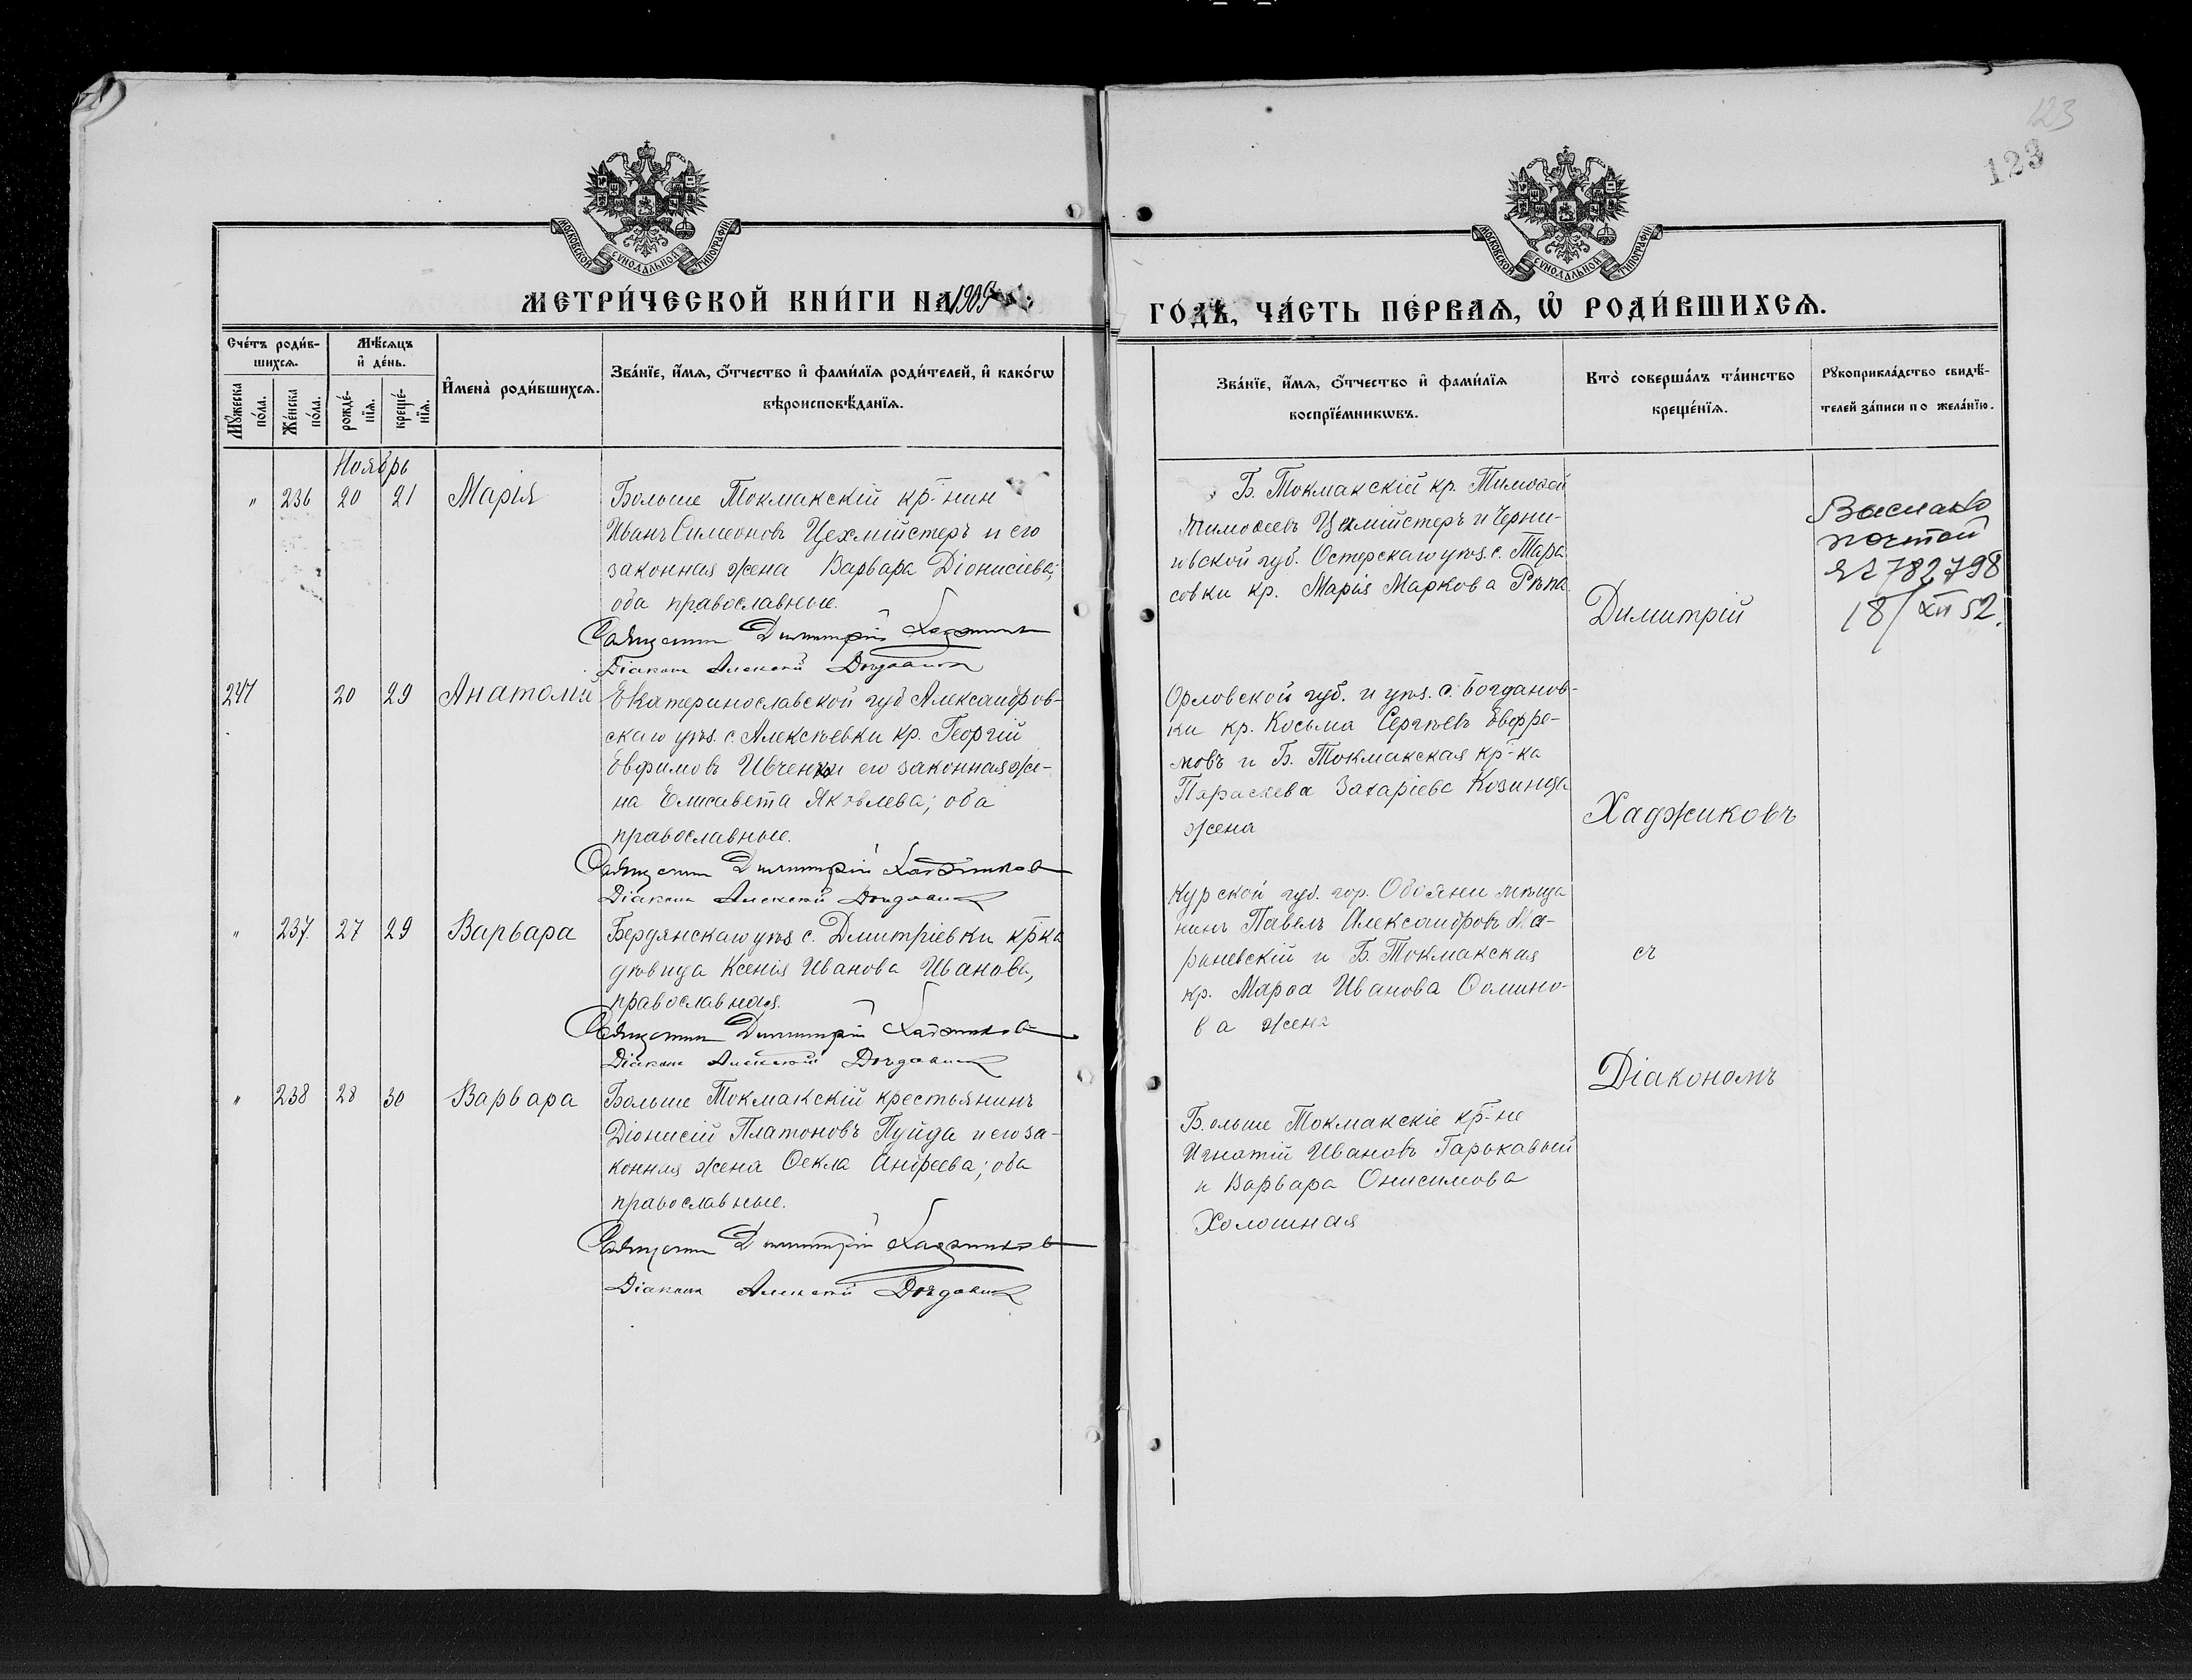 123
123
МОСКОВСКОЙ СУНОДАЛЬНОЙ ТИПОГРАФІИ
МОСКОВСКОЙ СУНОДАЛЬНОЙ ТИПОГРАФІИ
МЕТРИ́ЧЕСКОЙ КНИ́ГИ НА 1909
ГО́ДЪ, ЧА́СТЬ ПЕ́РВАѦ, Ѡ҆ РОДИ́ВШИХСѦ.
Сче́тъ роди́в-
шихсѧ.
Мѣ́сѧцъ
и҆ де́нь.
Мꙋ́жеска
по́ла.
Же́нска
по́ла.
рожде́-
нїѧ.
креще́-
нїѧ.
И҆мена̀ роди́вшихсѧ.
Зва́нїе, и҆́мѧ, ѻ҆́тчество и҆ фами́лїѧ роди́телей, и҆ како́гѡ
вѣроисповѣ́данїѧ.
Зва́нїе, и҆́мѧ, ѻ҆́тчество и҆ фами́лїѧ
воспрїе́мникѡвъ.
Кто̀ соверша́лъ та́инство
креще́нїѧ.
Рꙋкоприкла́дство свидѣ́-
телей за́писи по жела́нїю.
Ноябрь
" 236 20 21 Марія
Больше Токмакскій кр-нин
Иванъ Симеоновъ Цехмійстеръ и его
законная жена Варвара Діонисіева;
оба православные.
Священник Димитрій Хаджиков
Діакон Алексій
Б. Токмакскій кр. Тимоѳей
Тимоѳеевъ Цехмійстеръ и Черни-
говской губ. Остерскаго уѣз. с. Тара
совки кр. Марія Маркова Рѣпа
Димитрій
Выслано
почтой
782798
18/XII 52.
247 20 29 Анатолій
Екатеринославской губ Александров-
скаго уѣз. с. Алексѣевки кр. Георгій
Евфимовъ Ивченко и его законная же-
на Елисавета Яковлева; оба
православные.
Священник Димитрій Хаджиков
Діакон Алексій
Орловской губ. и уѣз. с. Богданов-
ки кр. Косьма Сергѣевъ Евфре-
мовъ и Б. Токмакская кр-ка
Параскева Захаріева
жена
Хаджиковъ
" 237. 27 29 Варвара
Бердянскаго уѣз с. Дмитріевки кр-ка
дѣвица Ксенія Иванова Иванова,
православная.
Священник Димитрій Хаджиков
Діакон Алексій
Курской губ. гор. Обояни мѣща
нинъ Павелъ Александровъ
и Б. Токмакская
кр. Марѳа Иванова Ѳомино-
ва жена
съ
Діакономъ
" 238 28 30 Варвара
Больше Токмакскій крестьянинъ
Діонисій Платоновъ Пуйда и его за-
конная жена Ѳекла Андреева; оба
православные.
Священник Димитрій Хаджиков
Діакон Алексій
Больше Токмакскіе кр-не
Игнатій Ивановъ Гарькавый
и Варвара Онисимова
Холошная